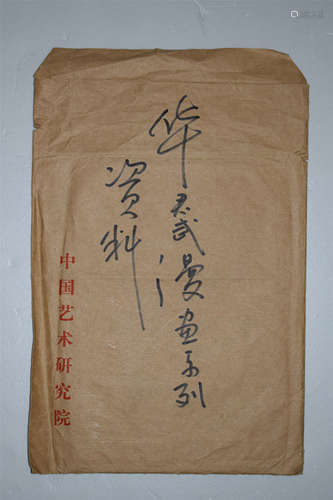 华君武漫画系列
资料
中国艺术研究院